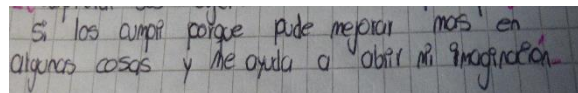 si los cumpli porque pude mejorar mas en
algunas cosas y me ayuda a abrir mi imaginación